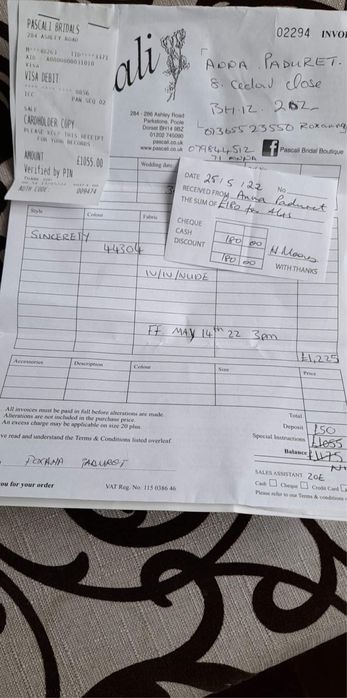 PASCALI BRIDALS
284 ASHLEY ROAD
VISA
VISA DEBIT
ICC
PAN SEQ 02
SALE
CARDHOLDER COPY
PLEASE KEEP THIS RECEIPT
FOR YOUR RECORDS
AMOUNT
£1055.00
Verified by PIN
AUTH CODE:
009474
ali
284 - 286 Ashley Road
Parkstone, Poole
Dorset BH14 9BZ
01202 745090
pascali.co.uk
www.pascali.co.uk
02294 INVOI
ANNA PADURET
8 Cedar close
BH12
Pascali Bridal Boutique
Wedding date
DATE 25/5/22 No
RECEIVED FROM Anna Paduret
THE SUM OF £180 for Alts
CHEQUE
CASH 180 00
DISCOUNT
180 00
N Moores
WITH THANKS
Style Colour Fabric
SINCERETY 44304
IV/IV/NUDE
FF MAY 14th 22 3pm
£1,225
Accessories Description Colour Size Price
All invoices must be paid in full before alterations are made.
Alterations are not included in the purchase price.
An excess charge may be applicable on size 20 plus.
ve read and understand the Terms & Conditions listed overleaf
Total
Deposit 150
Special Instructions £1055
Balance £1175
ROXANA PADURET
SALES ASSISTANT ZOE
Cash Cheque Credit Card
Please refer to our Terms & conditions
ou for your order
VAT Reg. No: 115 0386 46